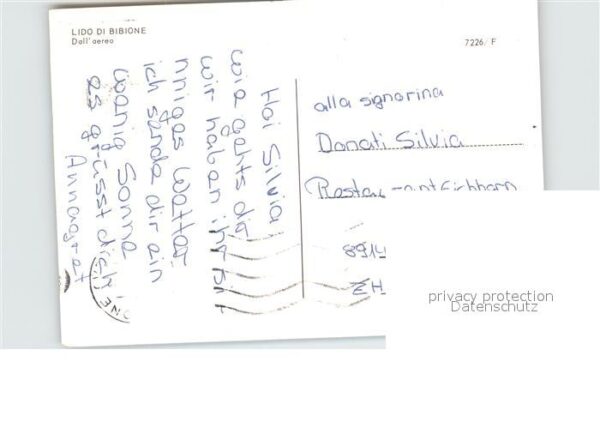 LIDO DI BIBIONE
Dall'aereo
7226/F
Hoi Silvia
wie gehts dir
wir haben ihr bit
nniges Wetter
ich sende dir ein
wenig Sonne
es grüsst dich
Annagret
alla signorina
Donati Silvia
Restau
Eichhorn
8914
ZH
privacy protection
Datenschutz